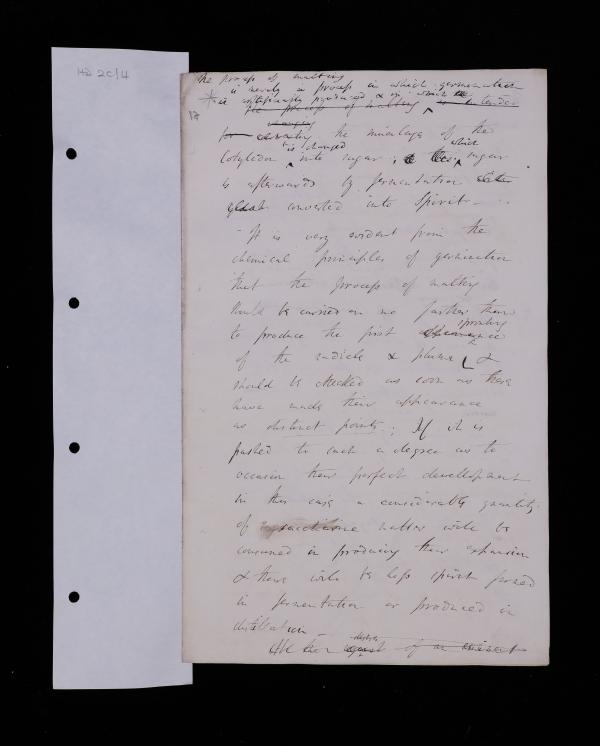 HD 2c/4
the process of malting
is merely a process in which germination
* is artificially produced & in which the
the process of malting is to render
17
changing
for the mucilage of the
is changed which
Cotyledon into sugar; & this sugar
is afterwards by fermentation
converted into Spirit —
It is very evident from the
chemical principles of germination
that the process of malting
should be carried on no farther than
sprouting
to produce the first appearance
of the radicle & plume &
should be checked as soon as these
have made their appearance
as distinct points; If it is
pushed to such a degree as to
occasion their perfect developement
in this case a considerable quantity
of saccharine matter will be
consumed in producing their expansion
& there will be less spirit formed
in fermentation or produced in
distillation —
of an